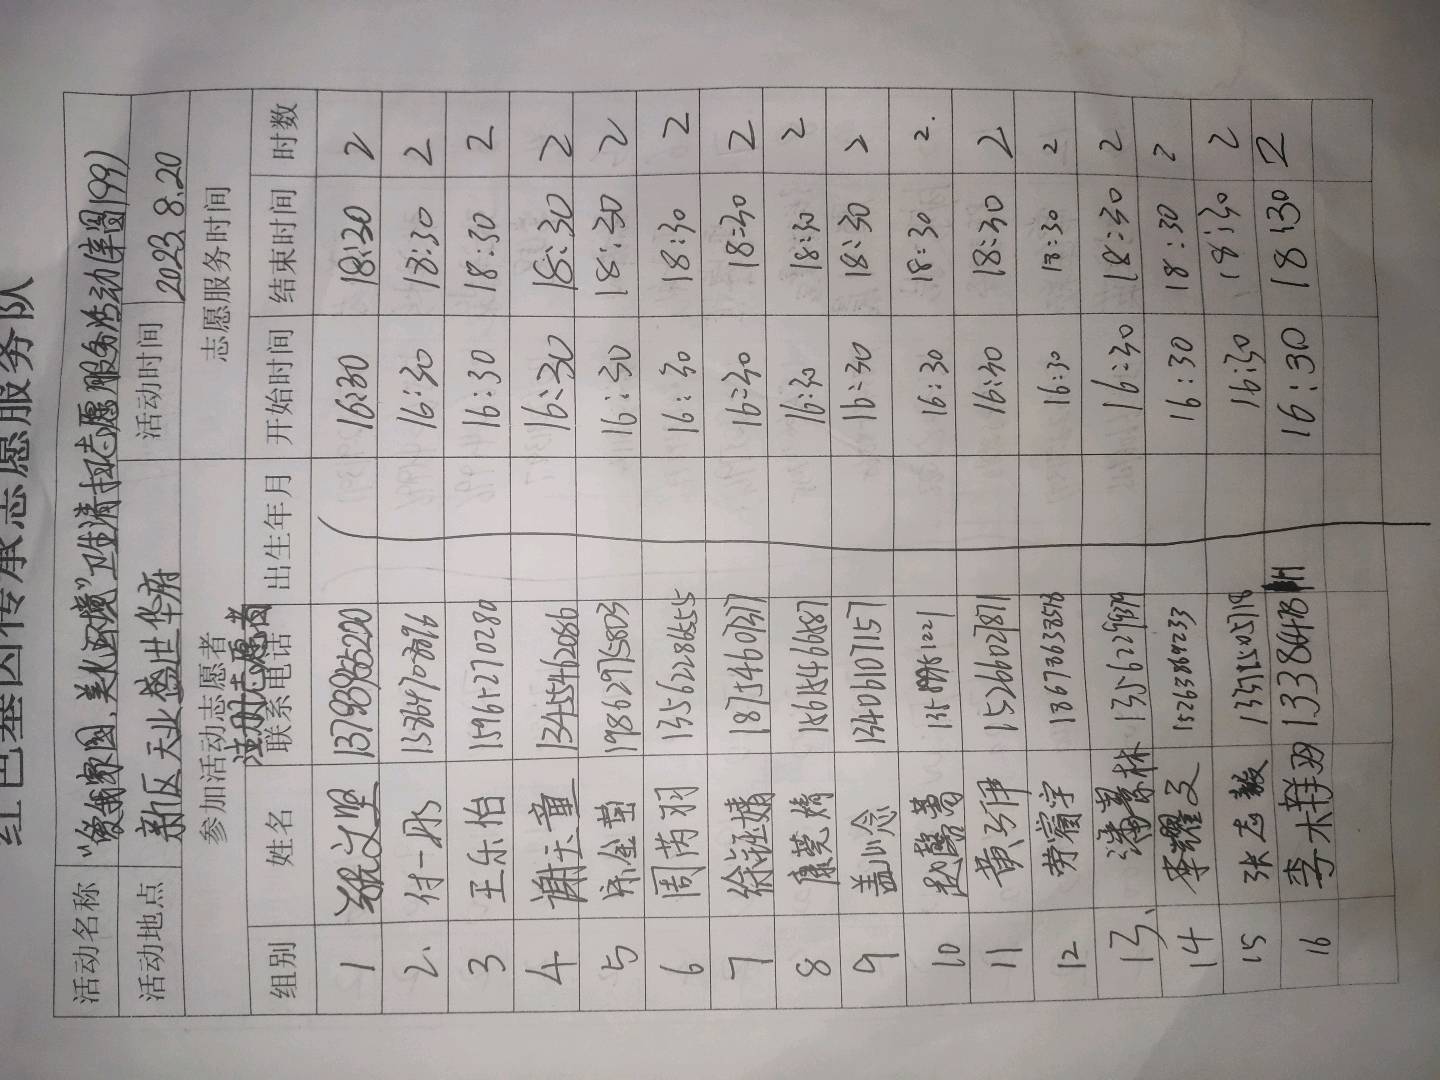 红色基因传承志愿服务队
活动名称 "爱我家园,美化环境"卫生清扫志愿服务活动(第199)
活动地点 新区天业盛世华府 活动时间 2023.8.20
参加活动志愿者 志愿服务时间
注册志愿者
组别 姓名 联系电话 出生年月 开始时间 结束时间 时数
1 13793985220 16:30 18:30 2
2. 付一丹 16:30 18:30 2
3 王乐怡 15965270280 16:30 18:30 2
4 谢玉童 13455462086 16:30 18:30 2
5 19862775803 16:30 18:30 2
6 周芮羽 13562286555 16:30 18:30 2
7 徐钰婧 18754607377 16:30 18:30 2
8 康莞婧 15615466687 16:30 18:30 2
9 盖小念 13406107157 16:30 18:30 2
10 赵馨蕾 16:30 18:30 2.
11 黄子伊 15266027871 16:30 18:30 2
12 劳睿宇 13673638578 16:30 18:30 2
13、 潘景林 13562299379 16:30 18:30 2
14 李耀文 15263869233 16:30 18:30 2
15 张志毅 16:30 18:30 2
16 李木群羽 16:30 18:30 2